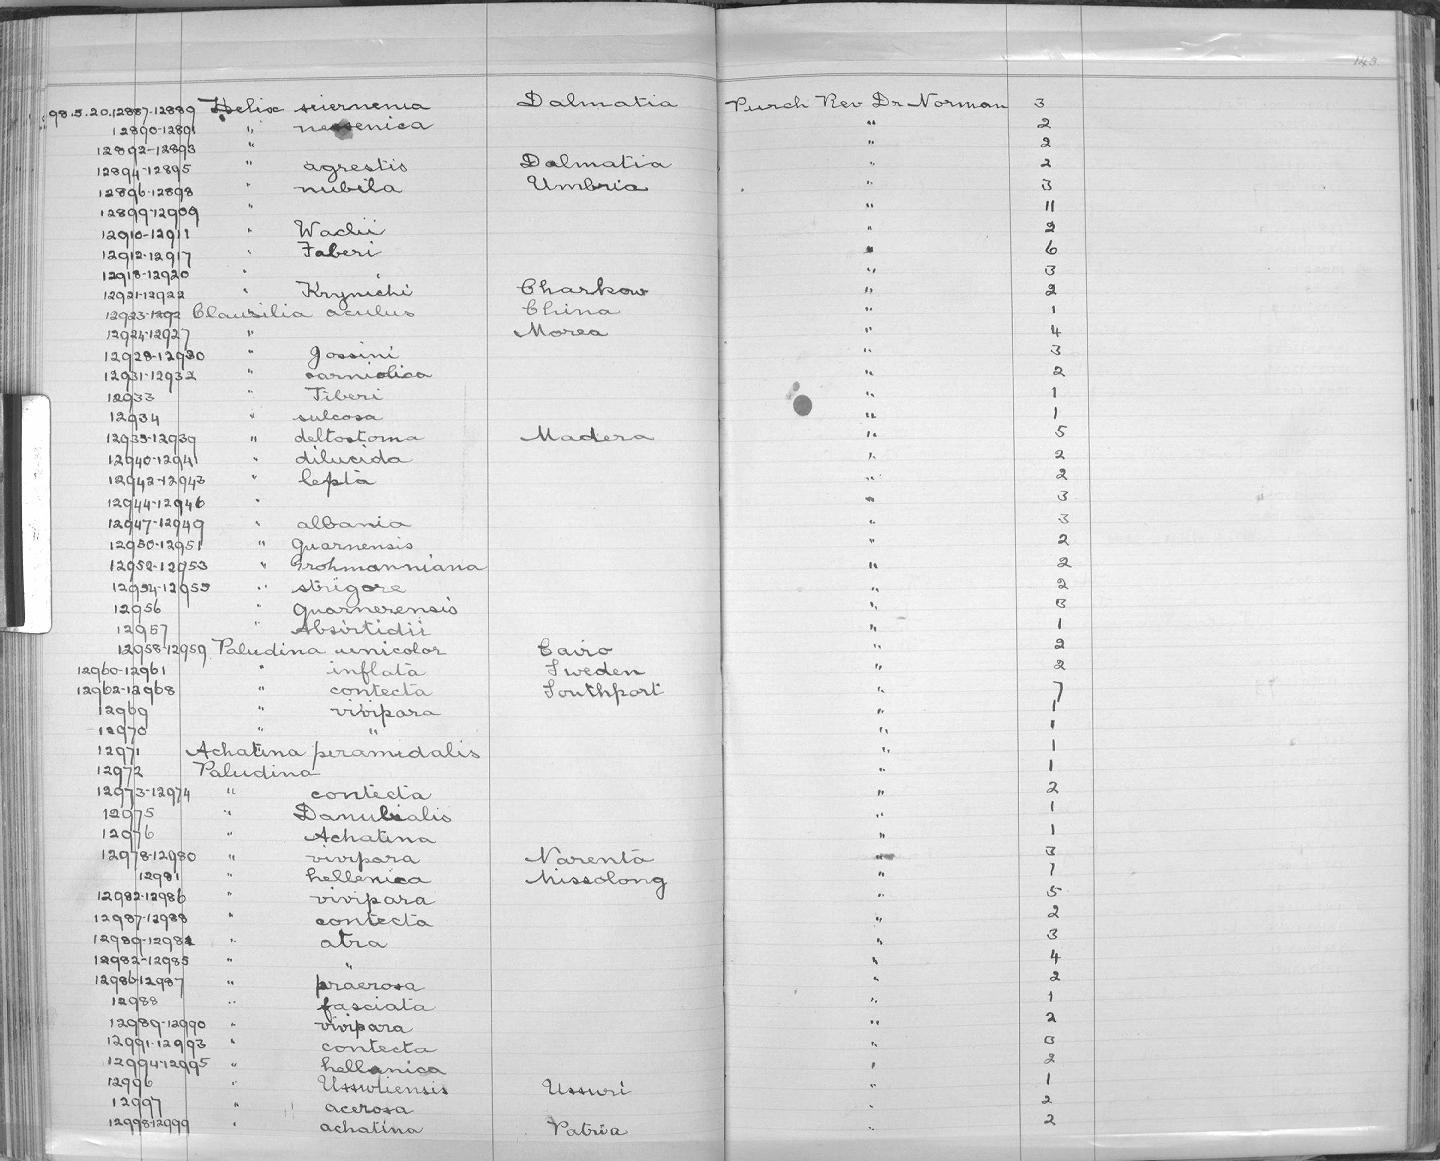 143
98.5.20.12887-12889 Helix Dalmatia Purch Rev Dr Norman 3
12890-12891 " " 2
12892-12893 " " 2
12894-12895 " agrestis Dalmatia " 2
12896-12898 " nubila Umbria " 3
12899-12909 " " 11
12910-12911 " " 2
12912-12917 " Faberi " 6
12918-12920 " " 3
12921-12922 " Krynichi Charkow " 2
12923-1292 Clausilia aculus China " 1
12924-12927 " Morea " 4
12928-12930 " Gossini " 3
12931-12932 " carniolica " 2
12933 " Tiberi " 1
12934 " sulcosa " 1
12935-12939 " deltostoma Madera " 5
12940-12941 " dilucida " 2
12942-12943 " lepta " 2
12944-12946 " " 3
12947-12949 " albania " 3
12950-12951 " guarnensis " 2
12952-12953 " Grohmanniana " 2
12954-12955 " strigore " 2
12956 " guarnerensis " 3
12957 " Absirtidii " 1
12958-12959 Paludina unicolor Cairo " 2
12960-12961 " inflata Sweden " 2
12962-12968 " contecta Southport " 7
12969 " vivipara " 1
12970 " " " 1
12971 Achatina piramidalis " 1
12972 Paludina " 1
12973-12974 " contecta " 2
12975 " Danubialis " 1
12976 " Achatina " 1
12978-12980 " vivipara Narenta " 3
12981 " hellenica Missolong " 1
12982-12986 " vivipara " 5
12987-12988 " contecta " 2
12989-12981 " atra " 3
12982-12985 " " " 4
12986-12987 " praerosa " 2
12988 " fasciata " 1
12989-12990 " vivipara " 2
12991-12993 " contecta " 3
12994-12995 " hellanica " 2
12996 " Ussuri " 1
12997 " acerosa " 2
12998-12999 " achatina Patria " 2